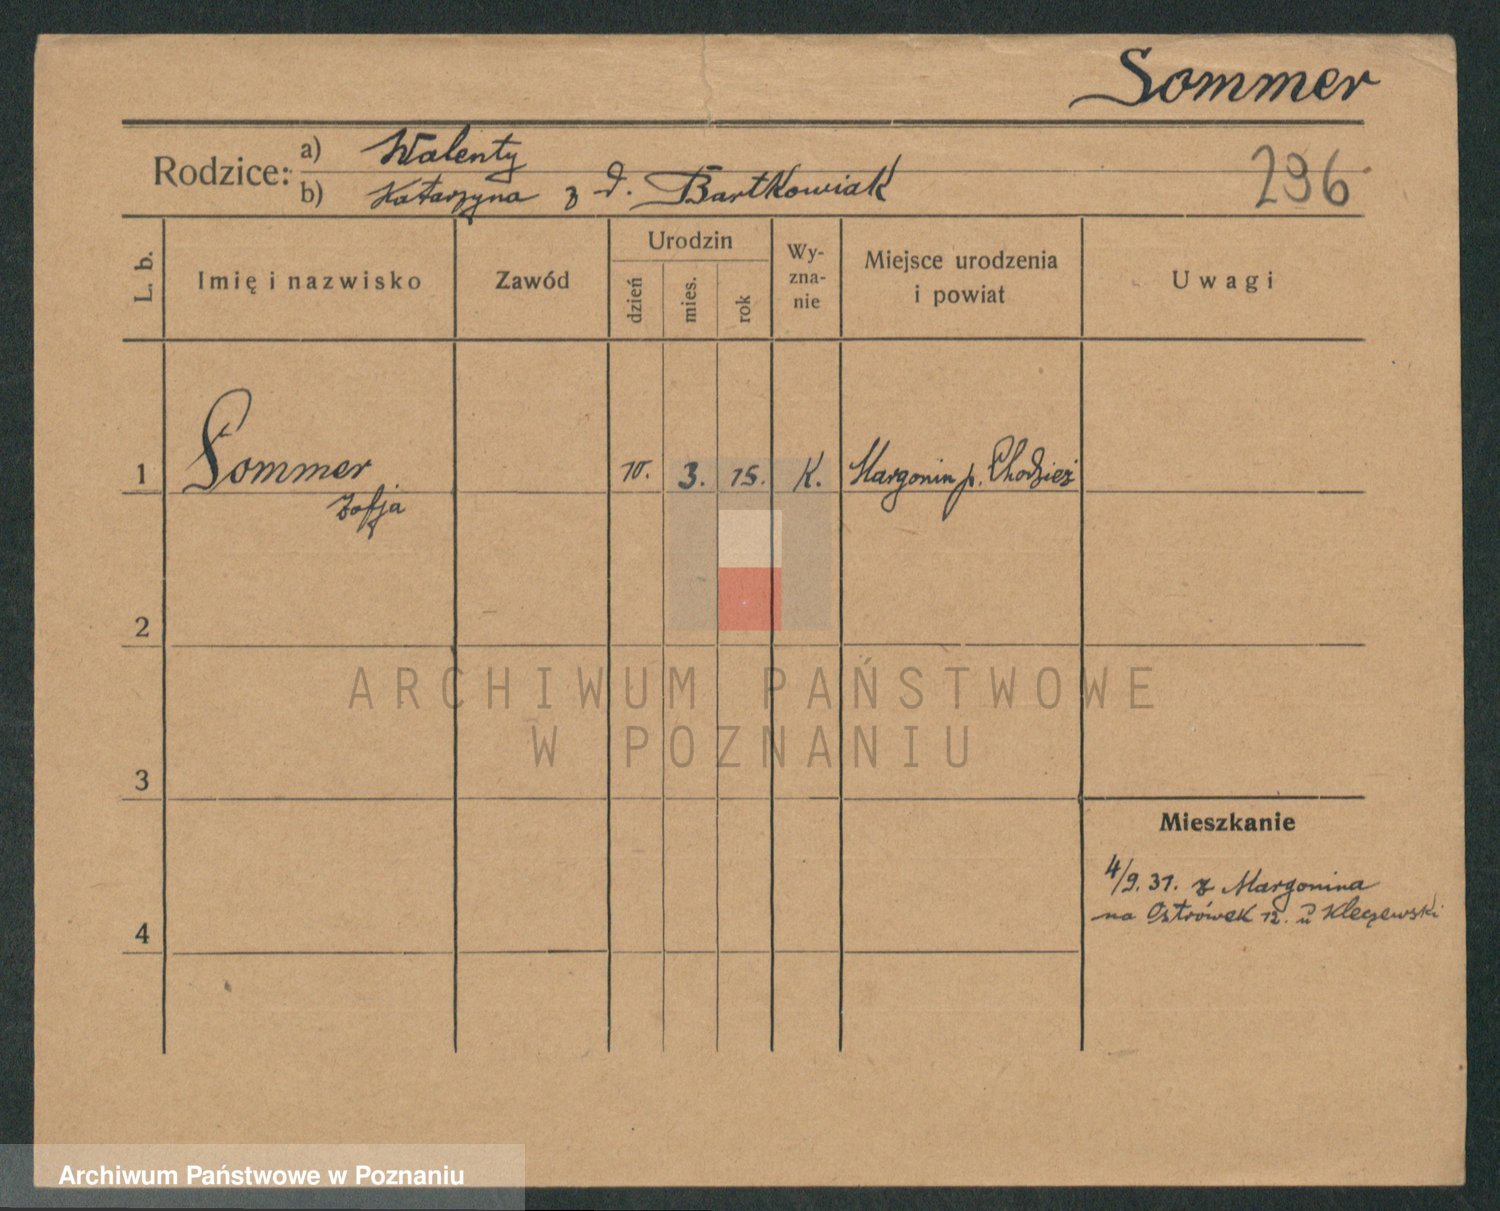 Sommer
Rodzice: a) Walenty
b) Katarzyna z d. Bartkowiak
296
L. b.
Imię i nazwisko
Zawód
Urodzin
dzień
mies.
rok
Wy-
zna-
nie
Miejsce urodzenia
i powiat
Uwagi
1 Sommer 10. 3. 15. K. Margonin p. Chodzież
Zofja
2
ARCHIWUM PAŃSTWOWE
W POZNANIU
3
Mieszkanie
4/9.31. z Margonina
na Ostrówek 12. u
4
Archiwum Państwowe w Poznaniu